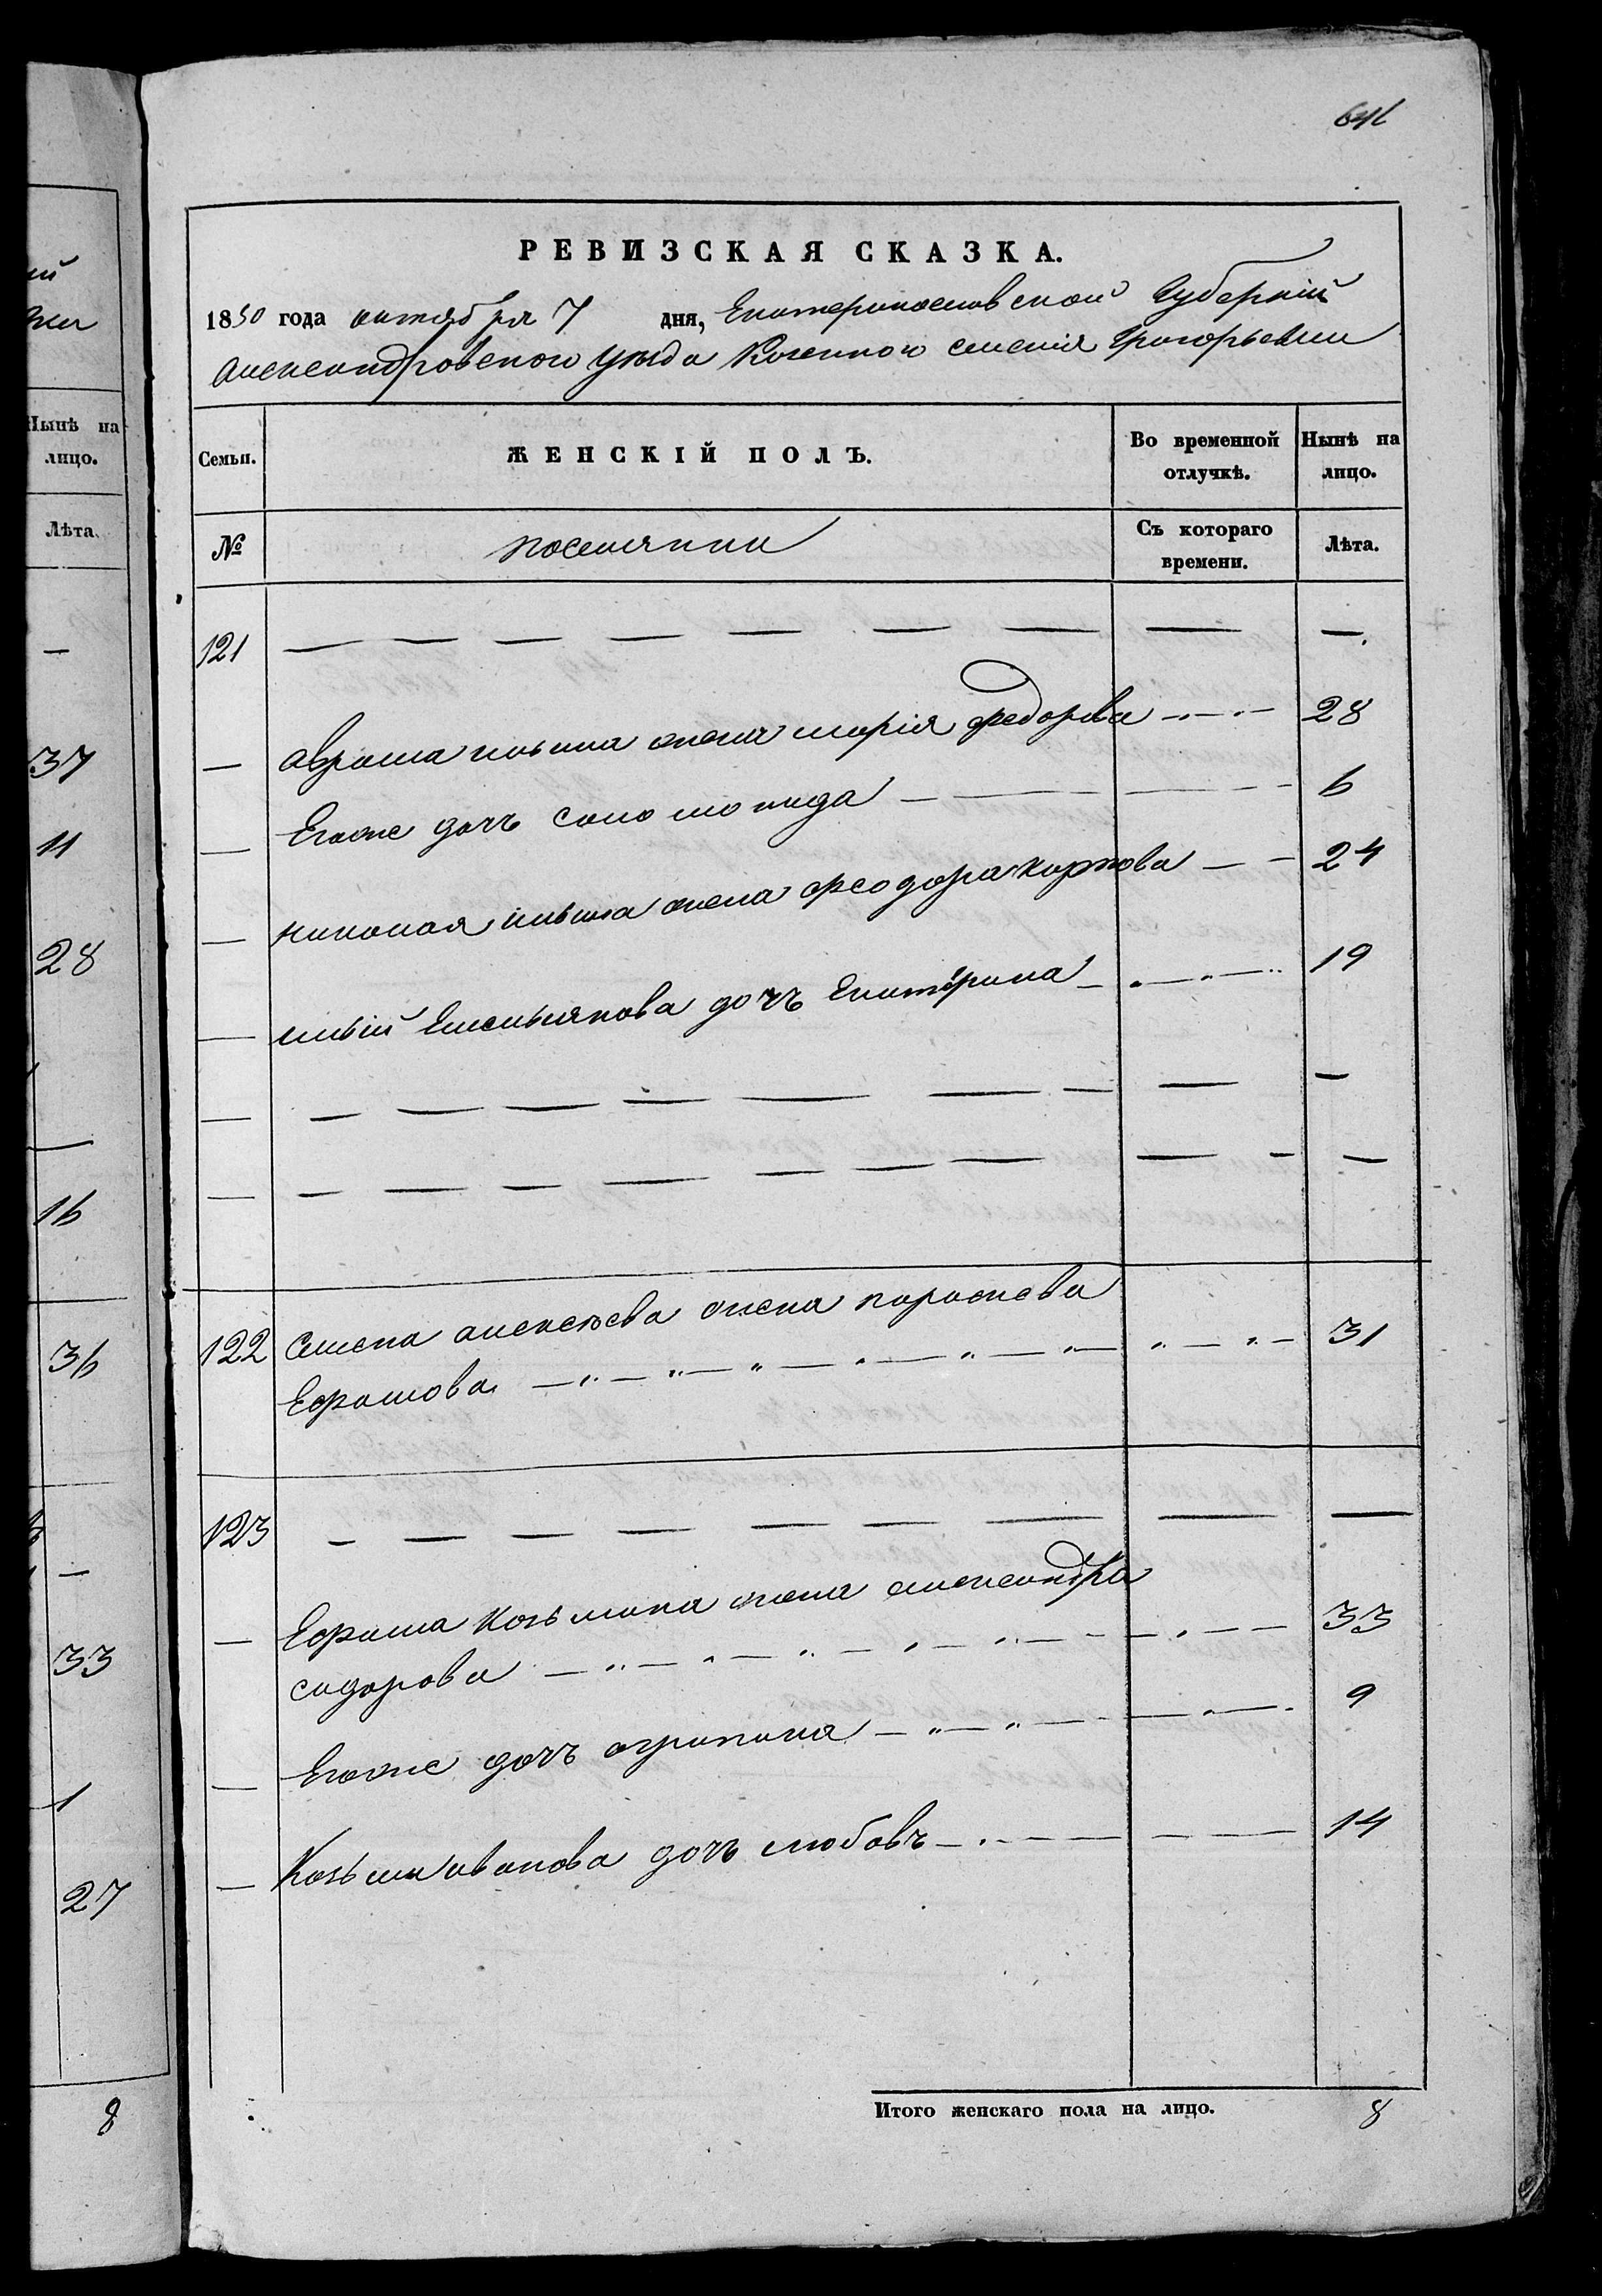 641
РЕВИЗСКАЯ СКАЗКА.
1850 года октября 7 дня, Екатеринославской Губерніи
Александровского уезда Козенного селенія Григорьевки
Семьи. ЖЕНСКІЙ ПОЛЪ. Во временной отлучкѣ. Нынѣ на лицо.
№ поселянки Съ котораго времени. Лѣта.
121 — — — — — — — — — —
— Аврама ильина жена марія федорова 28
— Егоже дочь соломонида 6
— николая ильина жена феодора карпова 24
— ильи Емельянова дочь Екатерина 19
— — — — — — — — — —
— — — — — — — — — — —
122 Семена алексеева жена парасковя
Ефрамова 31
123 — — — — — — — — —
— Ефрима Козьмина жена александра
сидорова 33
— Егоже дочь агрипина 9
— Козьмы иванова дочь любовь 14
Итого женскаго пола на лицо. 8
Нынѣ на
лицо.
Лѣта.
—
37
11
28
16
36
—
33
1
27
8